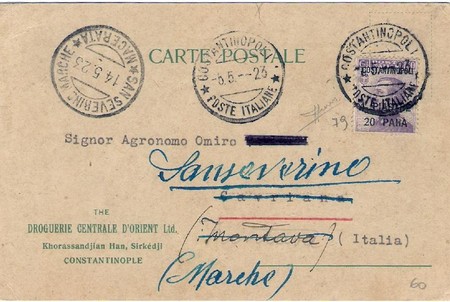 CARTE POSTALE
SANSEVERINO MARCHE
14.5.23
MACERATA
COSTANTINOPOLI
-5.5.-23
POSTE ITALIANE
COSTANTINOPOLI
POSTE ITALIANE
COSTANTINOPOLI
20 PARA
79
Signor Agronomo Omiro
Sanseverino
(Mantova) (Italia)
(Marche)
THE
DROGUERIE CENTRALE D'ORIENT Ltd.
Khorassandjian Han, Sirkédji
CONSTANTINOPLE
60